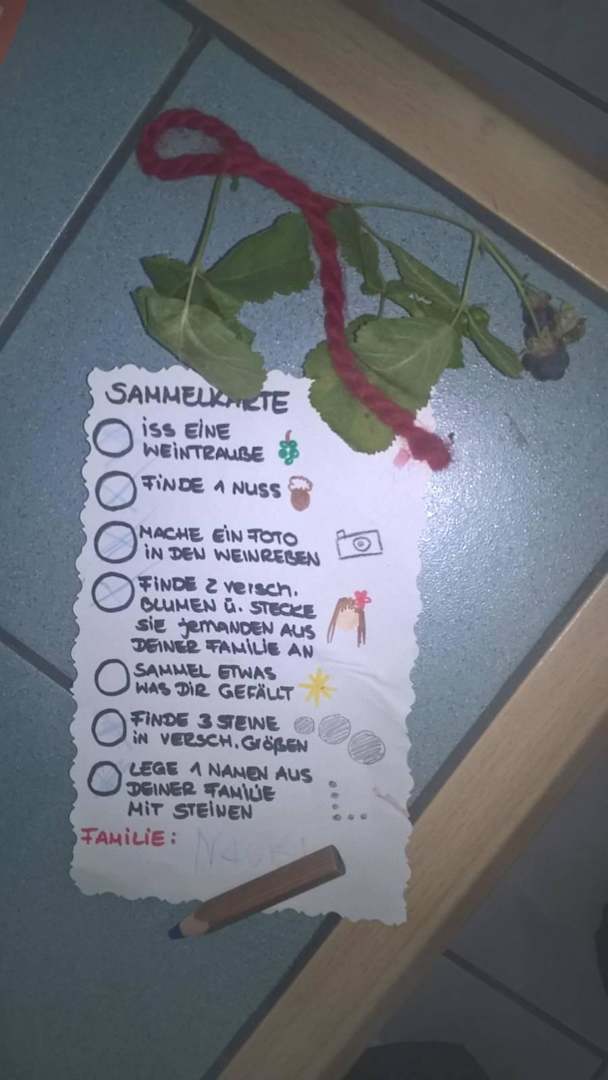 SAMMELKARTE
iSS EiNE
WEiNTRAUBE
FiNDE 1 NUSS
MACHE EiN FOTO
iN DEN WEINREBEN
FiNDE 2 versch.
BLUMEN ü. STECKE
SiE jemANDEN AUS
DEiNER FAMiLiE AN
SAMMEL ETWAS
WAS DiR GEFÄLLT
FiNDE 3 STEiNE
iN VERSCH. GRÖßEN
LEGE 1 NAMEN AUS
DEiNER FAMiLiE
MiT STEiNEN
FAMiLiE: